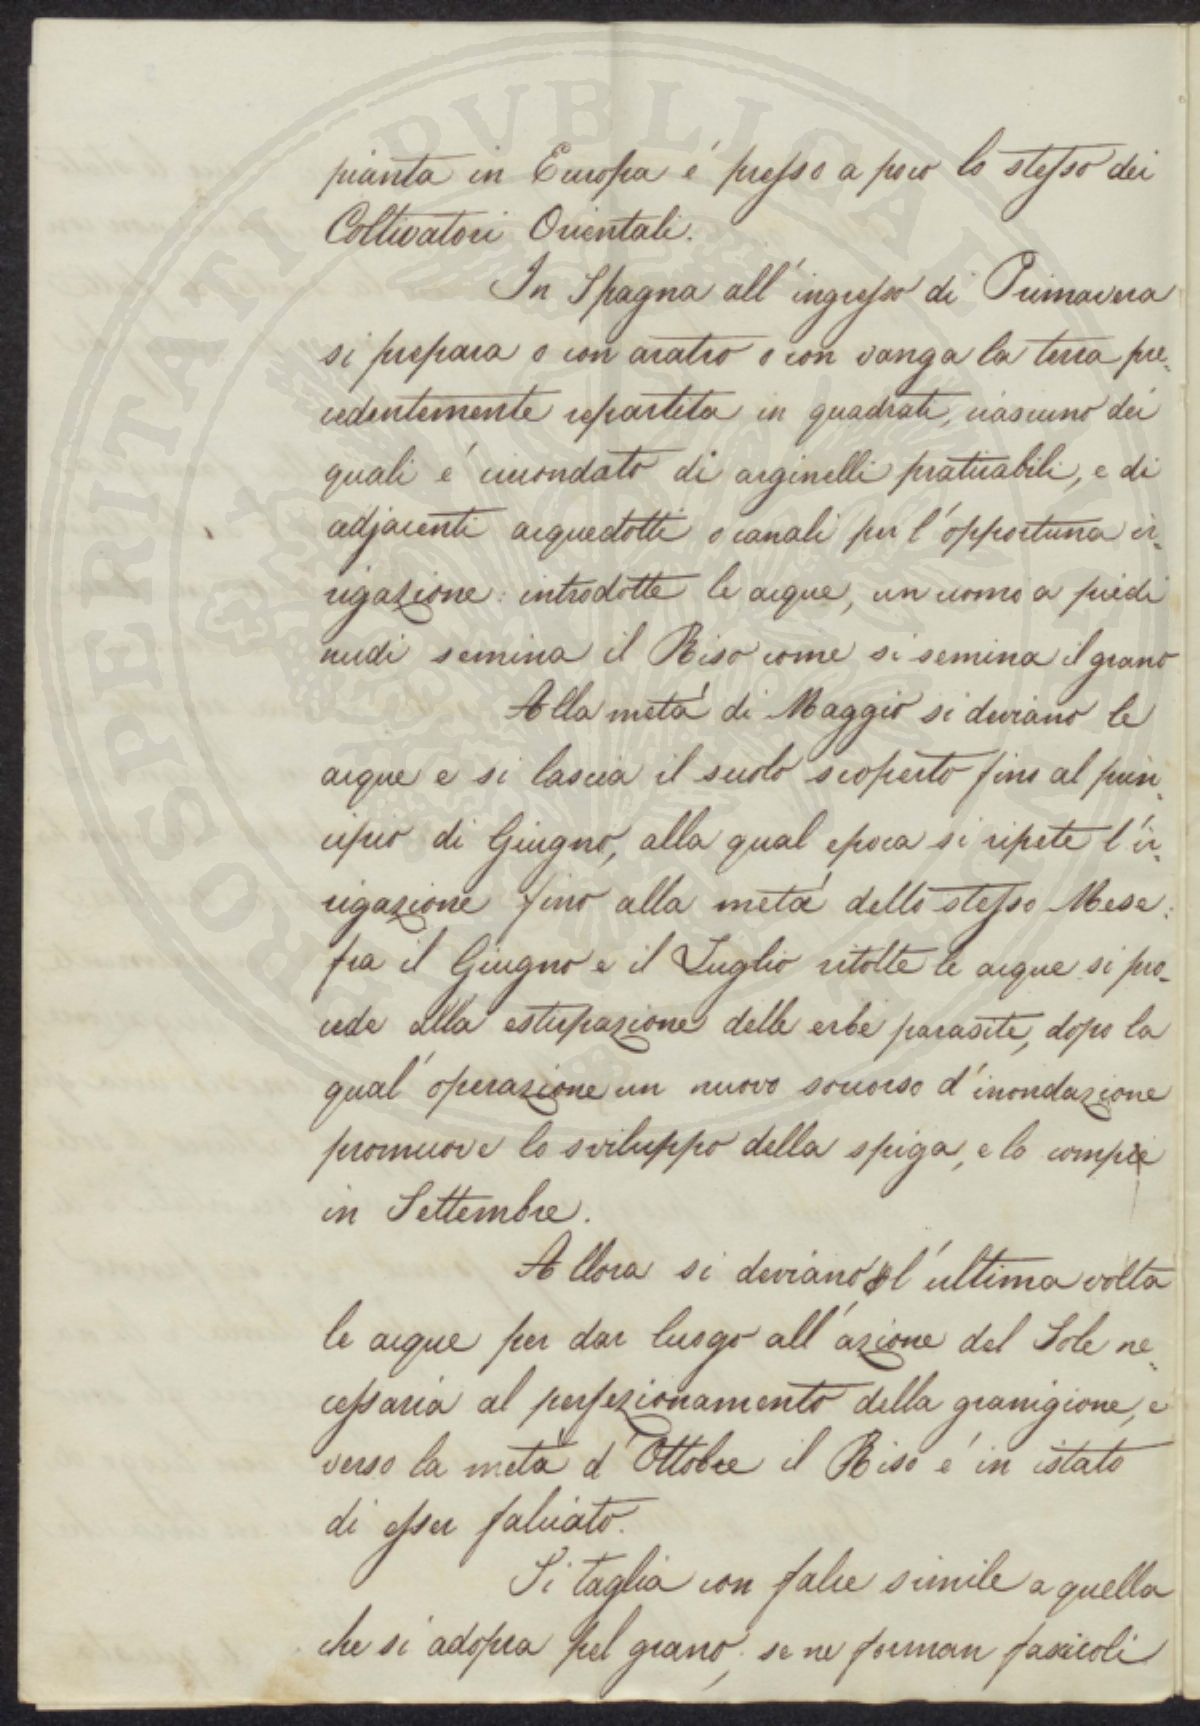 pianta in Europa é presso a poco lo stesso dei
Coltivatori Orientali.
In Spagna all'ingresso di Primavera
si prepara o con aratro o con vanga la terra pre-
cedentemente repartita in quadrati, ciascuno dei
quali é circondato di arginelli praticabili, e di
adjacenti acquedotti o canali per l'opportuna ir-
rigazione: introdotte le acque, un uomo a piedi
nudi semina il Riso come si semina il grano
Alla metá di Maggio si deviano le
acque e si lascia il suolo scoperto fino al prin-
cipio di Giugno, alla qual epoca si ripete l'ir-
rigazione fino alla metá dello stesso Mese:
fra il Giugno e il Luglio ritolte le acque si pro-
cede alla estirpazione delle erbe parasite, dopo la
qual' operazione un nuovo soccorso d'inondazione
promuove lo sviluppo della spiga, e lo compie
in Settembre.
Allora si deviano l'ultima volta
le acque per dar luogo all'azione del Sole ne-
cessaria al perfezionamento della granigione, e
verso la metà d'Ottobre il Riso é in istato
di esser falciato.
Si taglia con falce simile a quella
che si adopra pel grano; se ne forman fascicoli
PROSPERITATI PVBLICAE